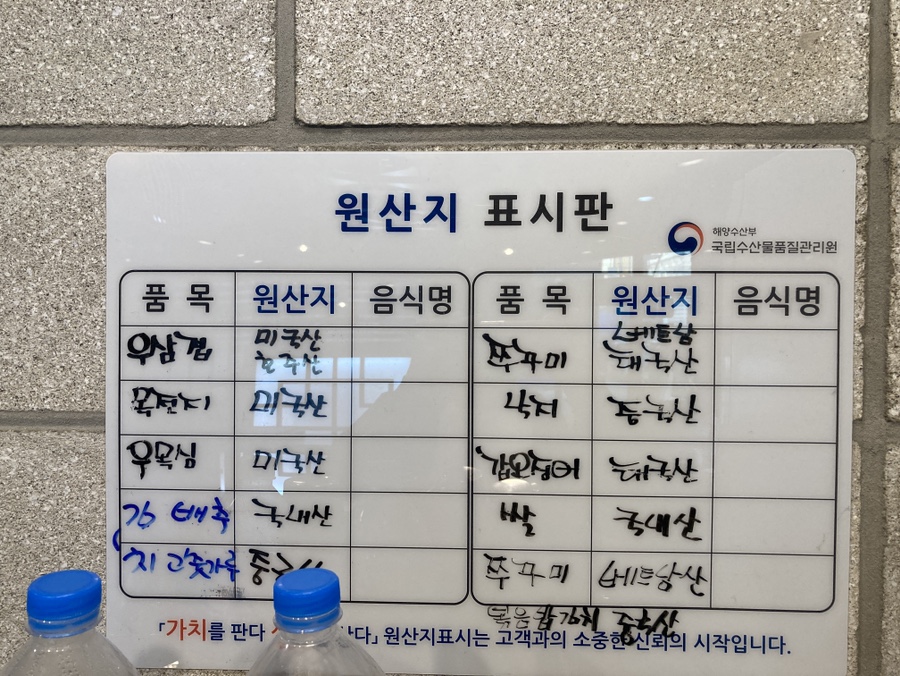 원산지 표시판
해양수산부
국립수산물품질관리원
품 목 원산지 음식명 품 목 원산지 음식명
우삼겹 미국산 쭈꾸미 베트남
호주산 태국산
목전지 미국산 낙지 중국산
우목심 미국산 갑오징어 태국산
김 배추 국내산 쌀 국내산
치 고춧가루 쭈꾸미 베트남산
볶음 김치 중국산
「가치를 판다 원산지표시는 고객과의 소중한 신뢰의 시작입니다.